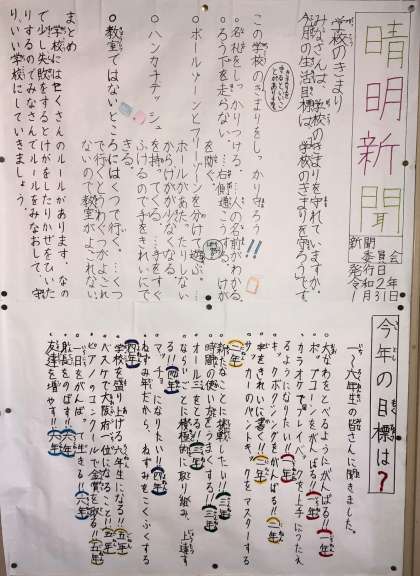 晴明新聞
新聞委員会
発行日
令和2年
1月31日
学校のきまり
みなさんは、学校のきまりを守れていますか。
今月の生活目標は、学校のきまりを守ろうです。
この学校のきまりをしっかり守ろう!!
○名札をしっかりつける。…人の名前がわかる。
○ろう下を走らない。…右側
○ボールゾーンとフリーゾーンを分けて遊ぶ。…
ボールがあたったりしない
からけがが少なくなる。
○ハンカチ、ティッシュを持ってくる。…手をすぐ
ふけるので手をきれいにで
きる。
○教室ではないところにはくつで行く。…くつ
で行くとうわぐつがよごれ
ないので教室がよごれない。
まとめ
学校にはたくさんのルールがあります。なの
で少し失敗をするとけがをしたりかぜをひいた
りするのでみなさんでルールをみなおして、
いい学校にしていきましょう。
今年の目標は?
一~六年生の皆さんに聞きました。
大なわをとべるようにがんばる!!一年
ポップコーンをがんばる!!一年
カラオケでトレイバックを上手につたえ
るようになりたい!!二年
キックボクシングをがんばる!!二年
字をきれいに書く!!二年
サッカーのペントキックをマスターする
三年
新なことに挑戦したい!!三年
時間の使い方をうまくする!!三年
オール三をとる!!三年
ならいごとに積極的に取り組み、上達す
る!!四年
マッチョになりたい!!四年
ねずみ年だから、ねずみをこくふくする
四年
学校を盛り上げる六年生になる!!五年
ベスケで大阪府一位になること!!五年
ピアノのコンクールで金賞を取る!!五年
一日をがんばって生きる!!六年
身長をのばす!!六年
友達を増やす!!六年